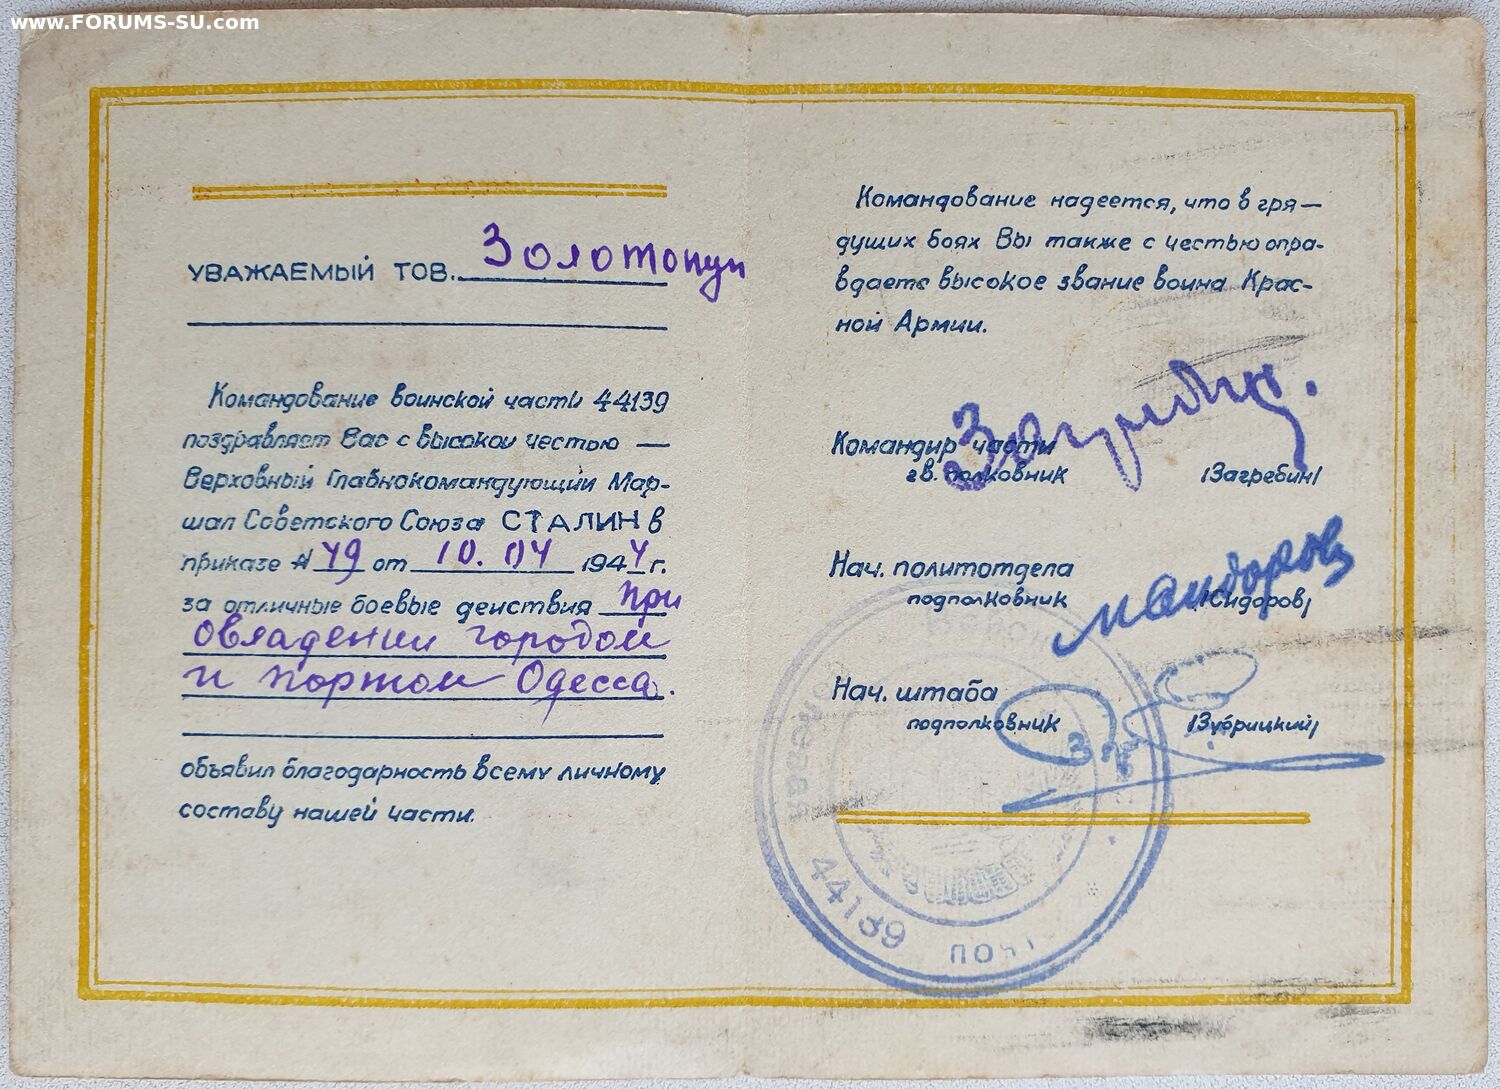 www.FORUMS-SU.com
УВАЖАЕМЫЙ ТОВ. Золотопуп
Командование воинской части 44139
поздравляет Вас с высокой честью —
Верховный Главнокомандующий Мар-
шал Советского Союза СТАЛИН в
приказе № 49 от 10.04 1944 г.
за отличные боевые действия при
овладении городом
и портом Одесса.
объявил благодарность всему личному
составу нашей части.
Командование надеется, что в гря—
дущих боях Вы также с честью опра-
вдаете высокое звание воина Крас-
ной Армии.
Командир части
гв. полковник /Загребин/
Нач. политотдела
подполковник /Сидоров/
Нач. штаба
подполковник /Зубрицкий/
полевая 44139 почт